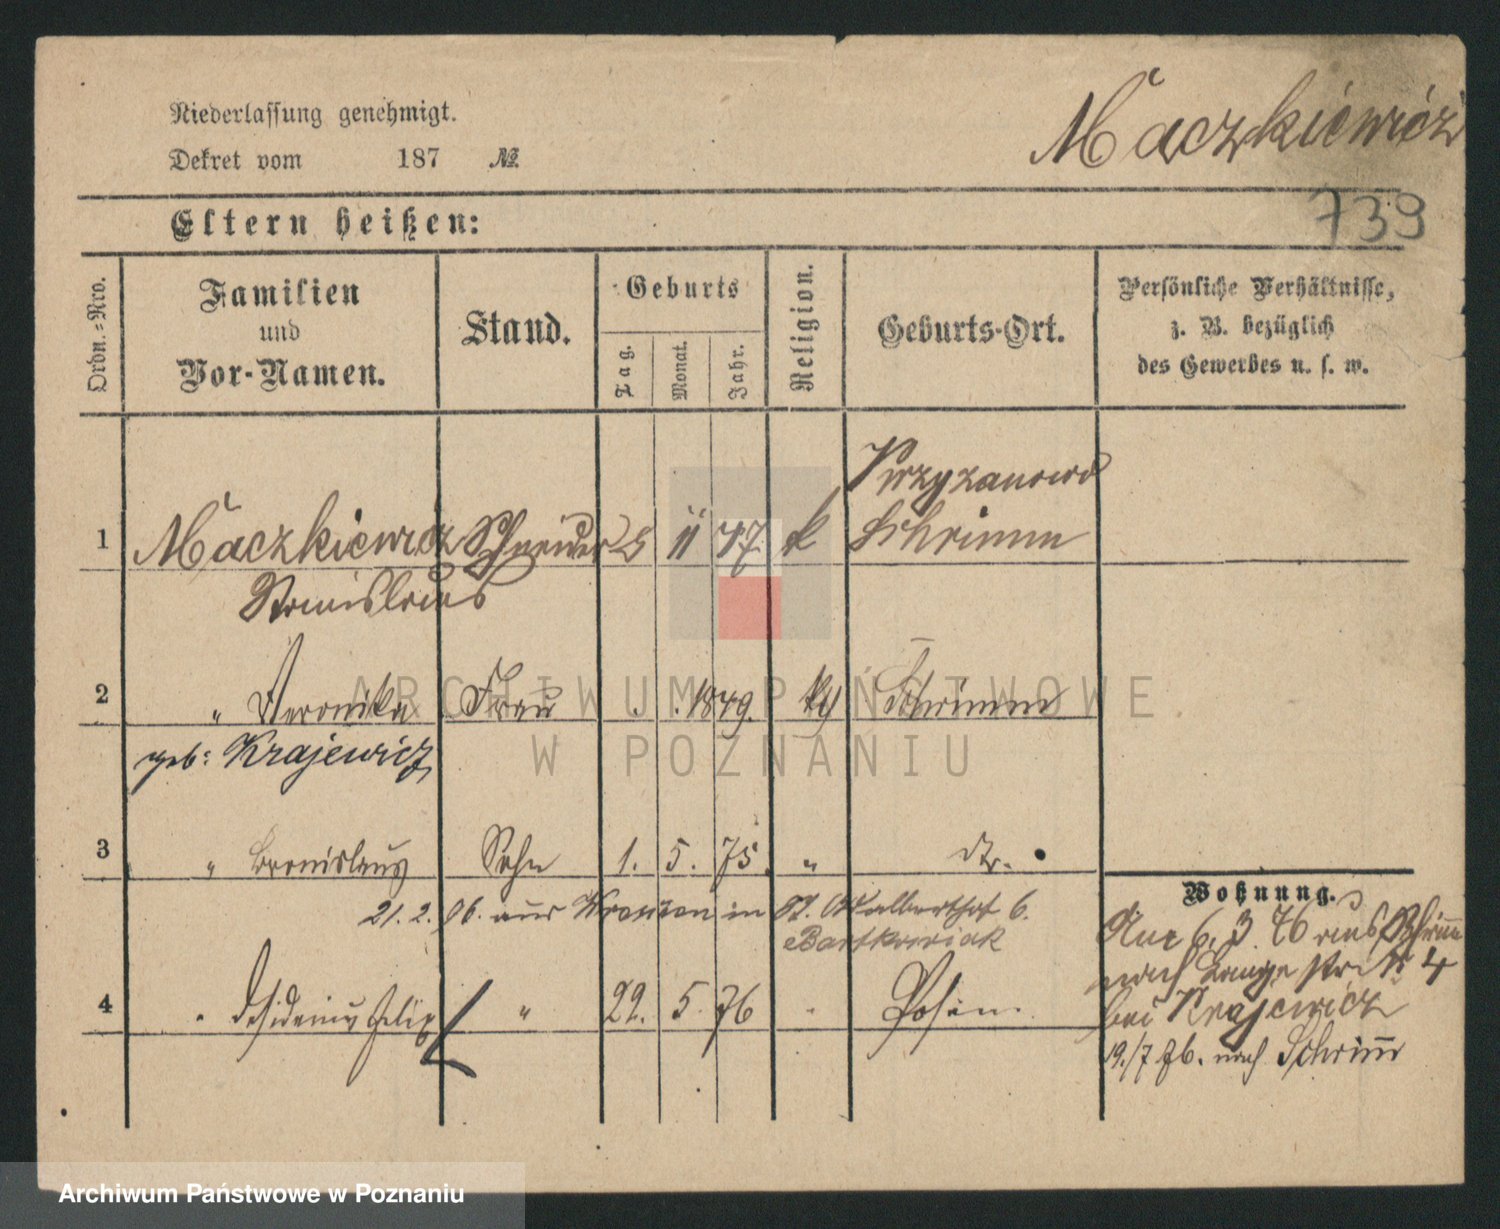 Niederlassung genehmigt.
Dekret vom 187 №
Maczkiewicz
739
Eltern heißen:
Ordn.=Nro.
Familien und Vor-Namen.
Stand.
Geburts
Tag.
Monat.
Jahr.
Religion.
Geburts-Ort.
Persönliche Verhältnisse,
z. B. bezüglich
des Gewerbes u. s. w.
Krzyzanowo
1 Maczkiewicz Schneider 5 11 47 k Schrimm
Stanislaus
2 " Veronika Frau . . 1849. Schrimm
geb: Krajewicz
3 " Bronislaus Sohn 1. 5. 75. " dto.
21. 2. 96. aus in St. Adalberthof 6.
Bartkowiak
4 " Desiderius Felix " 22. 5. 76 " Posen.
Wohnung.
6. 3. 76 aus Schrimm
nach Lange str. № 4
bei Krajewicz
19./7 76. nach Schrimm
ARCHIWUM PAŃSTWOWE
W POZNANIU
Archiwum Państwowe w Poznaniu